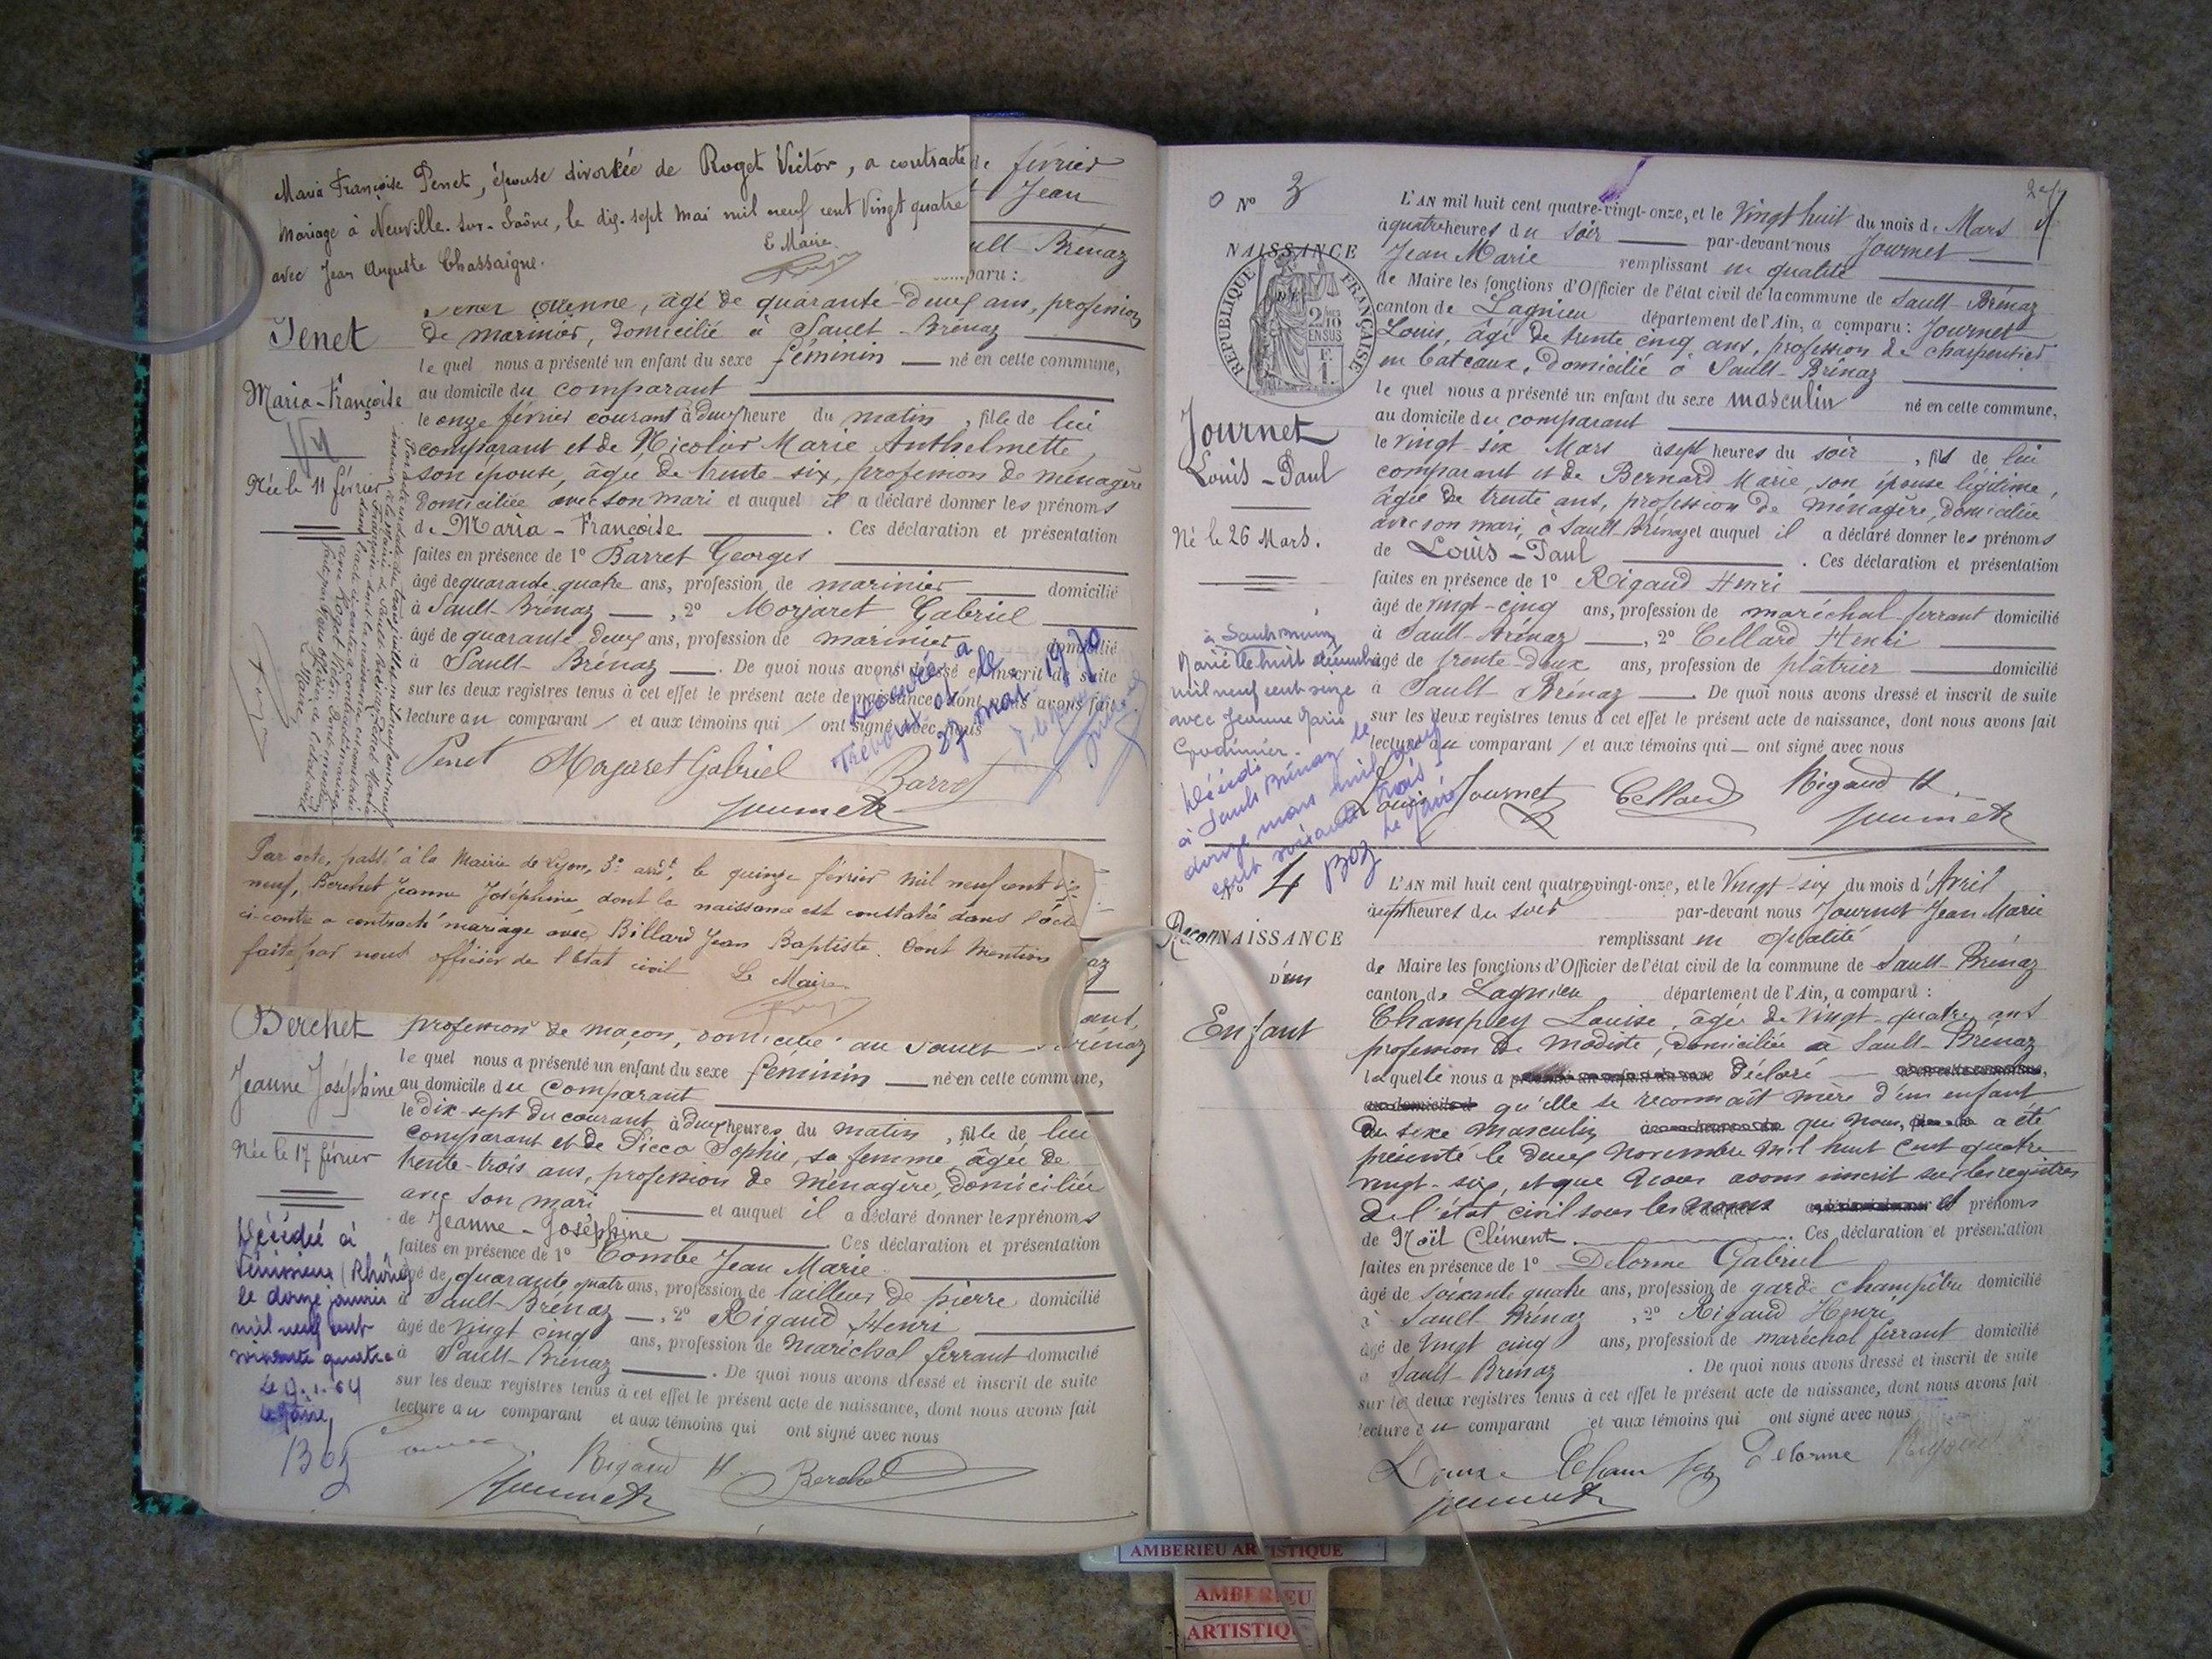 Maria Françoise Penet, épouse divorcée de Roget Victor, a contracté
mariage à Neuville-sur-Saône, le dix-sept mai mil neuf cent vingt quatre
avec Jean Auguste Chassaigne.
Le Maire
de février
Jean
ult-Brénaz
comparu :
Penet
Maria-Françoise
Née le 11 février
Etienne, âgé de quarante-deux ans, profession
de marinier, domicilié à Sault-Brénaz
le quel nous a présenté un enfant du sexe féminin né en cette commune,
au domicile du comparant
le onze février courant à deux heure du matin, fille de lui
comparant et de Nicolier Marie Anthelmette,
son épouse, âgée de trente-six, profession de ménagère
domiciliée avec son mari et auquel il a déclaré donner les prénoms
de Maria-Françoise. Ces déclaration et présentation
faites en présence de 1º Barret Georges
âgé de quarante-quatre ans, profession de marinier domicilié
à Sault-Brénaz, 2º Morjaret Gabriel
âgé de quarante-deux ans, profession de marinier domicilié
à Sault-Brénaz. De quoi nous avons dressé et inscrit de suite
sur les deux registres tenus à cet effet le présent acte de naissance, dont nous avons fait
lecture au comparant et aux témoins qui ont signé avec nous
Décédée à
Trévoux le
27 mai 1970
Penet Morjaret Gabriel Barret
Journet
Par acte, passé à la Mairie de Lyon, 3e arrt, le quinze février mil neuf cent dix
neuf, Berchet Jeanne Joséphine, dont la naissance est constatée dans l'acte
ci-contre a contracté mariage avec Billard Jean Baptiste. Dont mention
faite par nous officier de l'état civil Le Maire
Berchet
Jeanne Joséphine
Née le 17 février
profession de maçon, domicilié au Sault-Brénaz
le quel nous a présenté un enfant du sexe féminin né en cette commune,
au domicile du comparant
le dix-sept du courant à deux heures du matin, fille de lui
comparant et de Picco Sophie, sa femme âgée de
trente-trois ans, profession de ménagère, domiciliée
avec son mari et auquel il a déclaré donner les prénoms
de Jeanne-Joséphine Ces déclaration et présentation
faites en présence de 1º Combe Jean Marie
âgé de quarante quatre ans, profession de tailleur de pierre domicilié
à Sault-Brénaz, 2º Rigaud Henri
âgé de vingt cinq ans, profession de maréchal ferrant domicilié
à Sault-Brénaz. De quoi nous avons dressé et inscrit de suite
sur les deux registres tenus à cet effet le présent acte de naissance, dont nous avons fait
lecture au comparant et aux témoins qui ont signé avec nous
Décédée à
Vénissieux (Rhône)
le douze janvier
mil neuf cent
soixante quatre
Le Maire,
Boz
Rigaud H. Berchet
Journet
Nº 3
NAISSANCE
REPUBLIQUE FRANÇAISE
2/10 EN SUS
Journet
Louis-Paul
Né le 26 Mars.
L'AN mil huit cent quatre-vingt-onze, et le vingt huit du mois de Mars
à quatre heures du soir par-devant nous Journet
Jean Marie remplissant en qualité
de Maire les fonctions d'Officier de l'état civil de la commune de Sault-Brénaz
canton de Lagnieu département de l'Ain, a comparu : Journet
Louis, âgé de trente cinq ans, profession de charpentier
en bateaux, domicilié à Sault-Brénaz
le quel nous a présenté un enfant du sexe masculin né en cette commune,
au domicile du comparant
le vingt-six Mars à sept heures du soir, fils de lui
comparant et de Bernard Marie, son épouse légitime,
âgée de trente ans, profession de ménagère, domiciliée
avec son mari, à Sault-Brénaz et auquel il a déclaré donner les prénoms
de Louis-Paul. Ces déclaration et présentation
faites en présence de 1º Rigaud Henri
âgé de vingt-cinq ans, profession de maréchal ferrant domicilié
à Sault-Brénaz, 2º Cellard Henri
âgé de trente-deux ans, profession de plâtrier domicilié
à Sault Brénaz. De quoi nous avons dressé et inscrit de suite
sur les deux registres tenus à cet effet le présent acte de naissance, dont nous avons fait
lecture au comparant et aux témoins qui ont signé avec nous
Marié le huit décembre
mil neuf cent seize
avec Jeanne Marie
Décédé
à Sault Brénaz le
douze mars mil neuf
cent soixante trois
Le Maire
Boz
Louis Journet Cellard Rigaud H.
Journet
Nº 4
ReconNAISSANCE
D'un
Enfant
L'AN mil huit cent quatre-vingt-onze, et le vingt-six du mois d'Avril
à sept heures du soir par-devant nous Journet Jean Marie
remplissant en qualité
de Maire les fonctions d'Officier de l'état civil de la commune de Sault-Brénaz
canton de Lagnieu département de l'Ain, a comparu :
Champley Louise, âgée de vingt-quatre ans
profession de modiste, domiciliée à Sault-Brénaz
laquelle nous a déclaré
qu'elle se reconnaît mère d'un enfant
du sexe masculin qui nous a été
présenté le deux novembre mil huit cent quatre
vingt-six, et que nous avons inscrit sur les registres
de l'état civil sous les noms et prénoms
de Noël Clément. Ces déclaration et présentation
faites en présence de 1º Delorme Gabriel
âgé de soixante quatre ans, profession de garde champêtre domicilié
à Sault Brénaz, 2º Rigaud Henri
âgé de vingt cinq ans, profession de maréchal ferrant domicilié
à Sault-Brénaz. De quoi nous avons dressé et inscrit de suite
sur les deux registres tenus à cet effet le présent acte de naissance, dont nous avons fait
lecture au comparant et aux témoins qui ont signé avec nous
Louise Delorme Rigaud
Journet
AMBERIEU ARTISTIQUE
AMBERIEU
ARTISTIQ